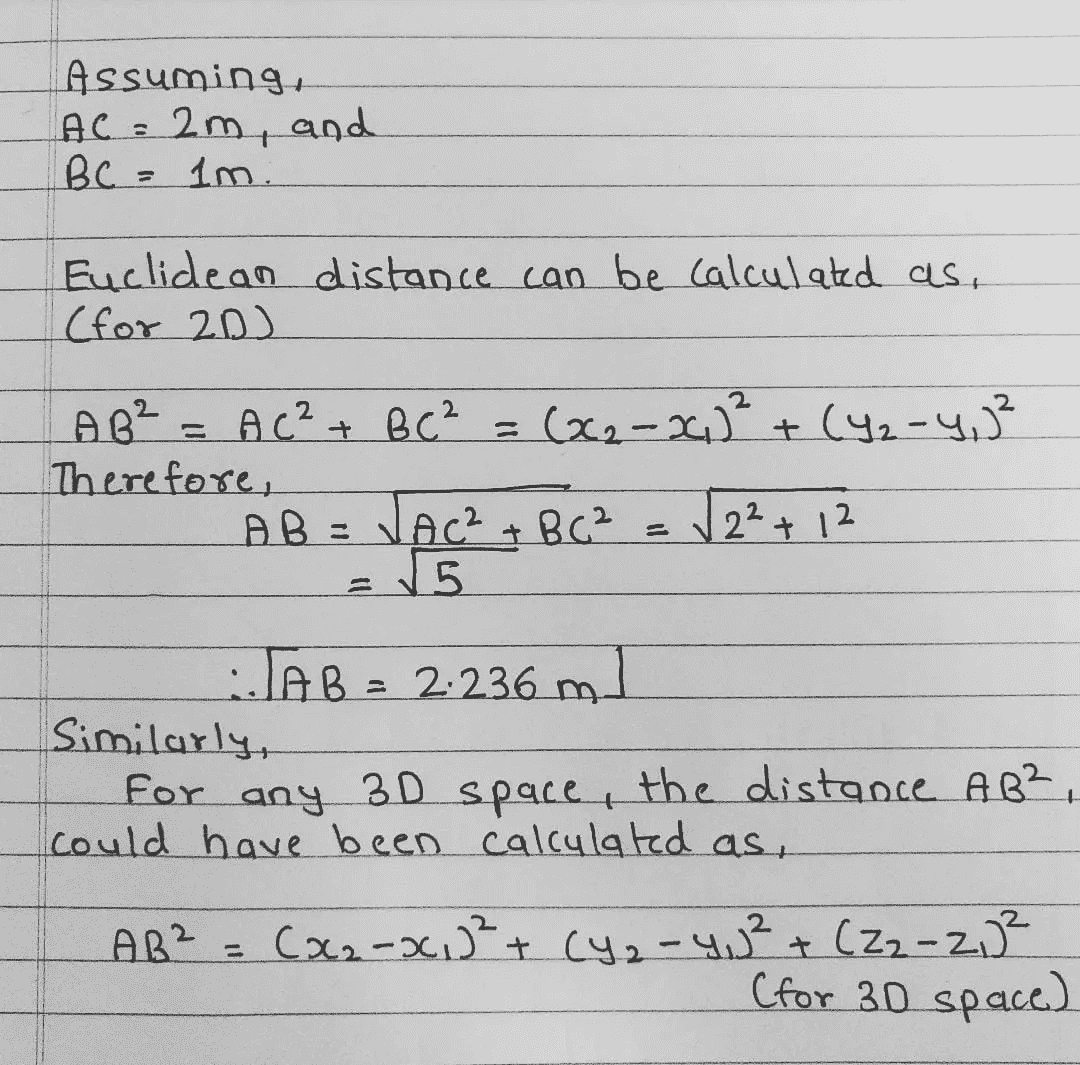 Assuming,
AC = 2m, and
BC = 1m.
Euclidean distance can be calculated as,
(for 2D)
AB² = AC² + BC² = (x₂-x₁)² + (y₂-y₁)²
Therefore,
AB = √AC² + BC² = √2² + 1²
= √5
∴ AB = 2.236 m
Similarly,
For any 3D space, the distance AB²,
could have been calculated as,
AB² = (x₂-x₁)² + (y₂-y₁)² + (z₂-z₁)²
(for 3D space)